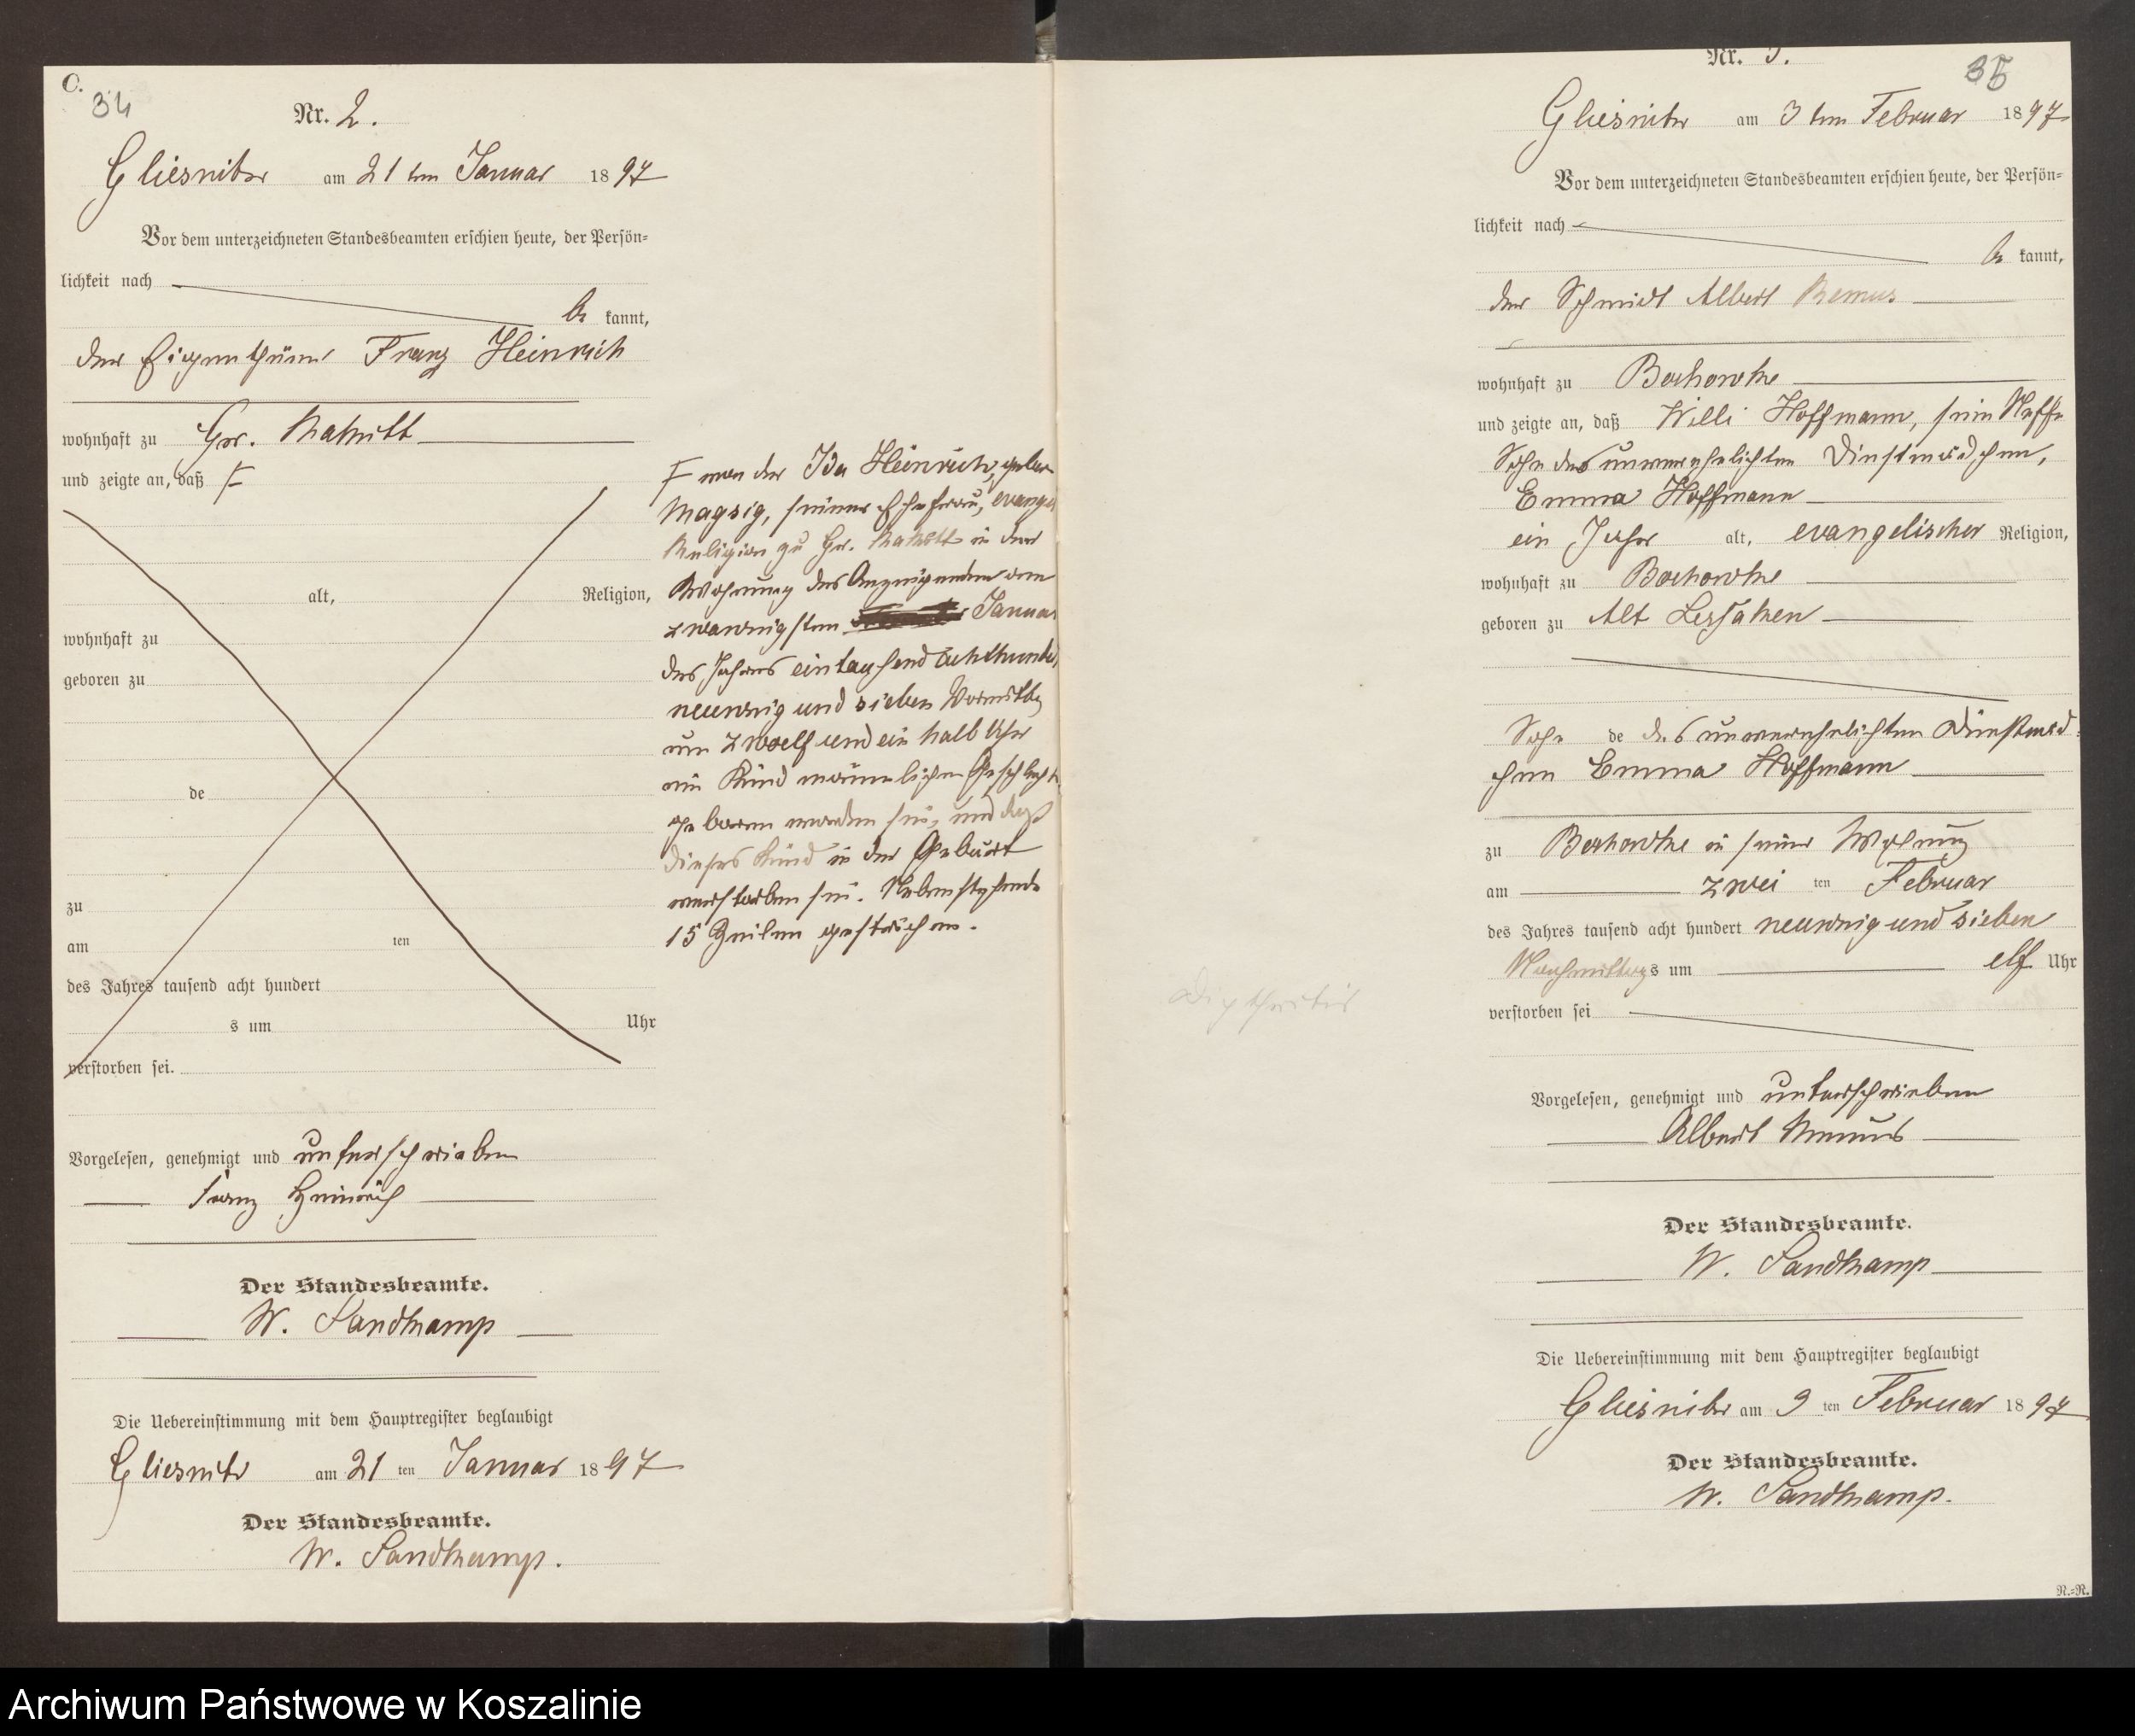 C.
34
Nr. 2.
Gliesnitz am 21 ten Januar 1897
Vor dem unterzeichneten Standesbeamten erschien heute, der Persön-
lichkeit nach
be kannt,
der Eigenthümer Franz Heinrich
wohnhaft zu Gr.
und zeigte an, daß F
alt, Religion,
wohnhaft zu
geboren zu
de
zu
am ten
des Jahres tausend acht hundert
s um Uhr
verstorben sei.
Vorgelesen, genehmigt und unterschrieben
Franz Heinrich
Der Standesbeamte.
W. Sandkamp
Die Uebereinstimmung mit dem Hauptregister beglaubigt
Gliesnitz am 21 ten Januar 1897
Der Standesbeamte.
W. Sandkamp.
F von der Ida Heinrich, gebor
Magsig, seiner Ehefrau, evange
Religion zu Gr. in der
Wohnung des Anzeigenden am
zwanzigsten Januar
des Jahres eintausend achthundert
neunzig und sieben Vormittag
um zwoelf und ein halb Uhr
ein Kind männlichen Geschlechts
geboren worden sei, und daß
dieses Kind in der Geburt
verstorben sei. Nebenstehende
15 Zeilen gestrichen.
Nr. 3.
35
Gliesnitz am 3 ten Februar 1897
Vor dem unterzeichneten Standesbeamten erschien heute, der Persön-
lichkeit nach
be kannt,
der Schmidt Albert Remus
wohnhaft zu Bochowke
und zeigte an, daß Willi Hoffmann, sein Neffe
Sohn des unverehelichten Dinstmädchen,
Emma Hoffmann
ein Jahr alt, evangelischer Religion,
wohnhaft zu Bochowke
geboren zu Alt Lessaken
Sohn de des unverehelichten Dinstmäd-
chen Emma Hoffmann
zu Bochowke in seiner Wohnung
am zwei ten Februar
des Jahres tausend acht hundert neunzig und sieben
Nachmittags um elf Uhr
verstorben sei
Diphtheritis
Vorgelesen, genehmigt und unterschrieben
Albert Remus
Der Standesbeamte.
W. Sandkamp
Die Uebereinstimmung mit dem Hauptregister beglaubigt
Gliesnitz am 3 ten Februar 1897
Der Standesbeamte.
W. Sandkamp.
N.-N.
Archiwum Państwowe w Koszalinie